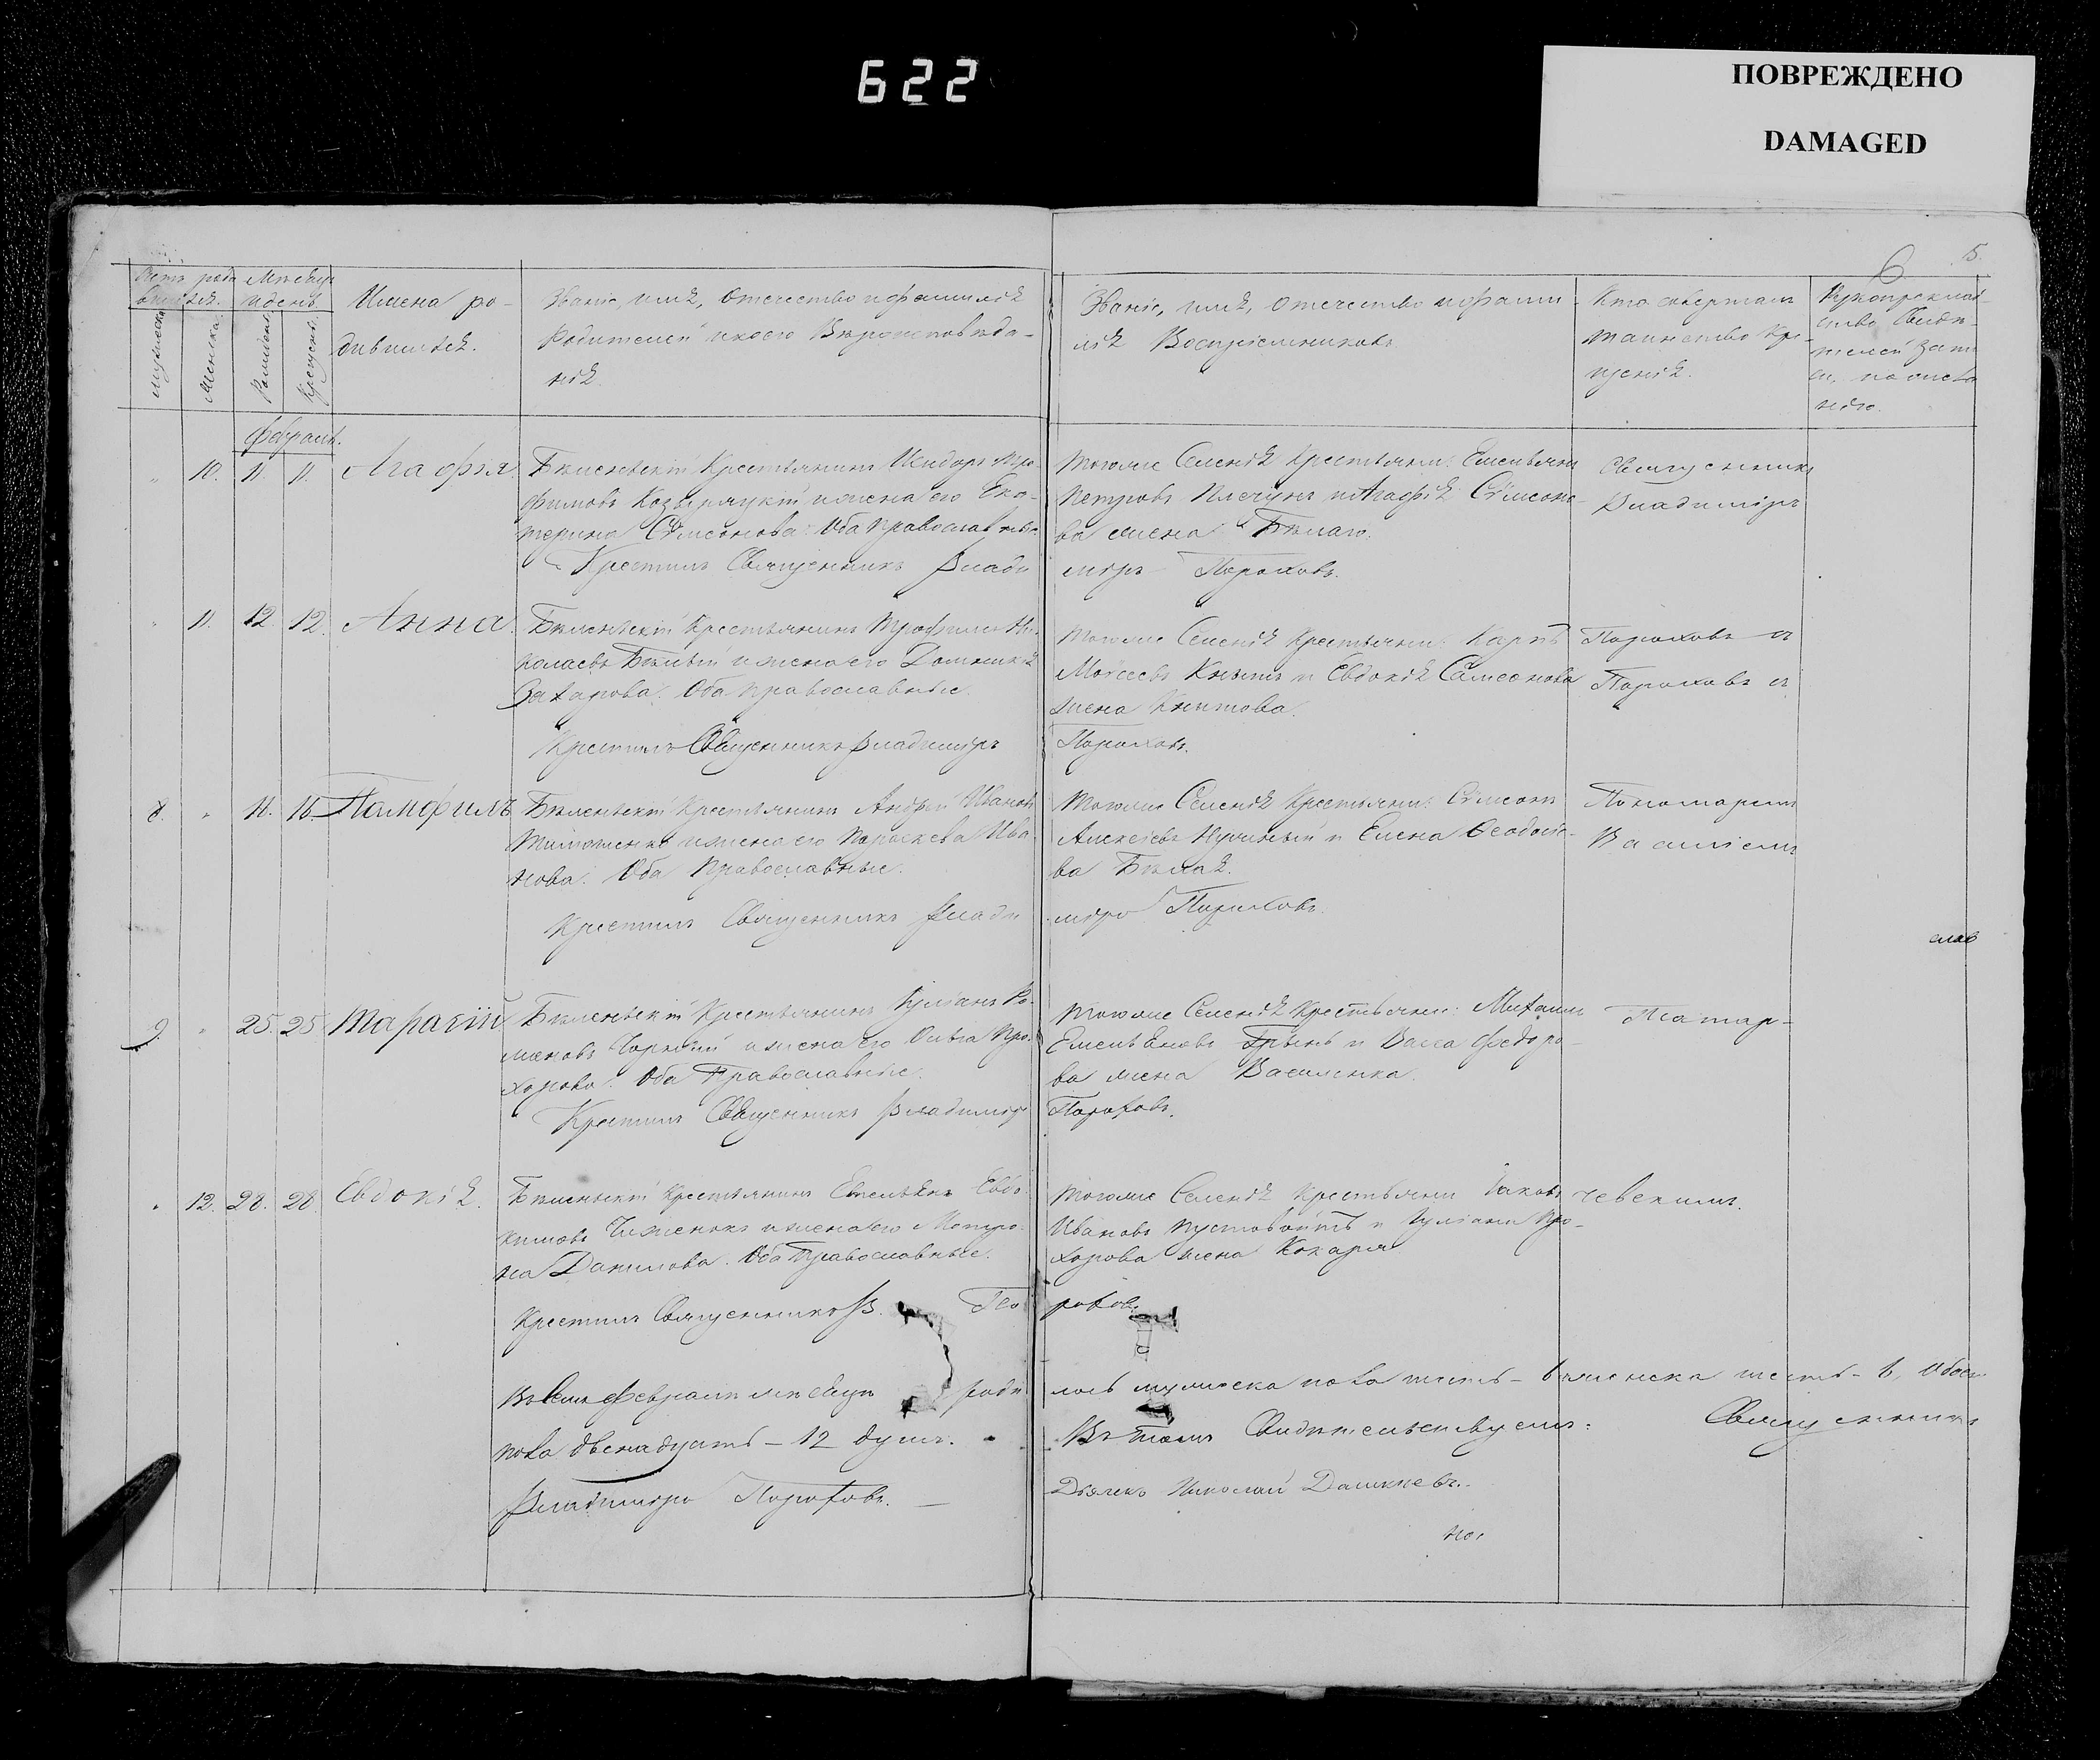 622
ПОВРЕЖДЕНО
DAMAGED
6 5.
Имена ро-
дившихся.
Званіе, имя, отечество и фамилія
Родителей и коего Вѣроисповѣда-
нія.
Званіе, имя, отечество и фами-
лія Воспріемниковъ
Кто совершалъ
таинство Кре-
щенія.
Рукоприклад-
ство Свидѣ-
телей запи-
си, по жела-
нію.
мужеска
Женска
Рожденія
Крещенія
Февраль.
10. 11. 11. Агафія
Бѣленьскій Крестьянинъ Исидоръ Тро-
фимовъ и жена его Ека-
терина Сѵмеонова. Оба православные.
Крестилъ Священникъ Влади
тогоже Селенія Крестьяни: Емельянъ
Петровъ Плечунъ и Агафія Сѵмеоно-
ва жена Бѣлаго.
міръ Пороховъ.
Священникъ
Владиміръ
11. 12. 12. Анна.
Бѣленьскій Крестьянинъ Трофимъ Ни-
колаевъ Бѣлый и жена его Домникія
Захарова. Оба православные.
Крестилъ Священникъ Владиміръ
тогоже Селенія Крестьяни: Карпъ
Моѵсеевъ Книшъ и Евдокія Самсонова
жена Книшова.
Пороховъ.
Пороховъ съ
Пороховъ съ
8. 11. 16. Памфилъ
Бѣленьскій Крестьянинъ Андрей Ивановъ
Тимошенко и жена его Параскева Ива-
нова. Оба Православные.
Крестилъ Священникъ Влади
тогоже Селенія Крестьяни: Сѵмеонъ
Алексѣевъ и Елена Ѳеодосіе-
ва Бѣлая.
міръ Пороховъ.
Пономаремъ
Василіемъ
слав
9. 25. 25. Тарасій
Бѣленьскій Крестьянинъ Іуліанъ Ро-
мановъ Чорный и жена его Ольга Про-
хорова. Оба Православные.
Крестилъ Священникъ Владиміръ
тогоже Селенія Крестьяни: Михаилъ
Емельяновъ Грынь и Васса Федоро-
ва жена Василенка.
Пороховъ.
Патар-
12. 28. 28. Евдокія.
Бѣленьскій Крестьянинъ Емельянъ Евдо-
кимовъ Чиженокъ и жена его Матро-
на Данилова. Оба Православные.
Крестилъ Священникъ В. По
тогоже Селенія Крестьяни Іаковъ
Ивановъ Пустовойтъ и Іуліана Про-
хорова жена Кокаря
роховъ.
чевскимъ.
Въ Семъ Февралѣ мѣсяцѣ роди
лось мужеска пола шесть - 6, женска шесть - 6, обоего
пола двенадцать - 12 душъ.
Въ томъ Свидѣтельствуемъ: Священникъ
Владиміръ Пороховъ. -
Дьячекъ Николай Дашкіевъ.